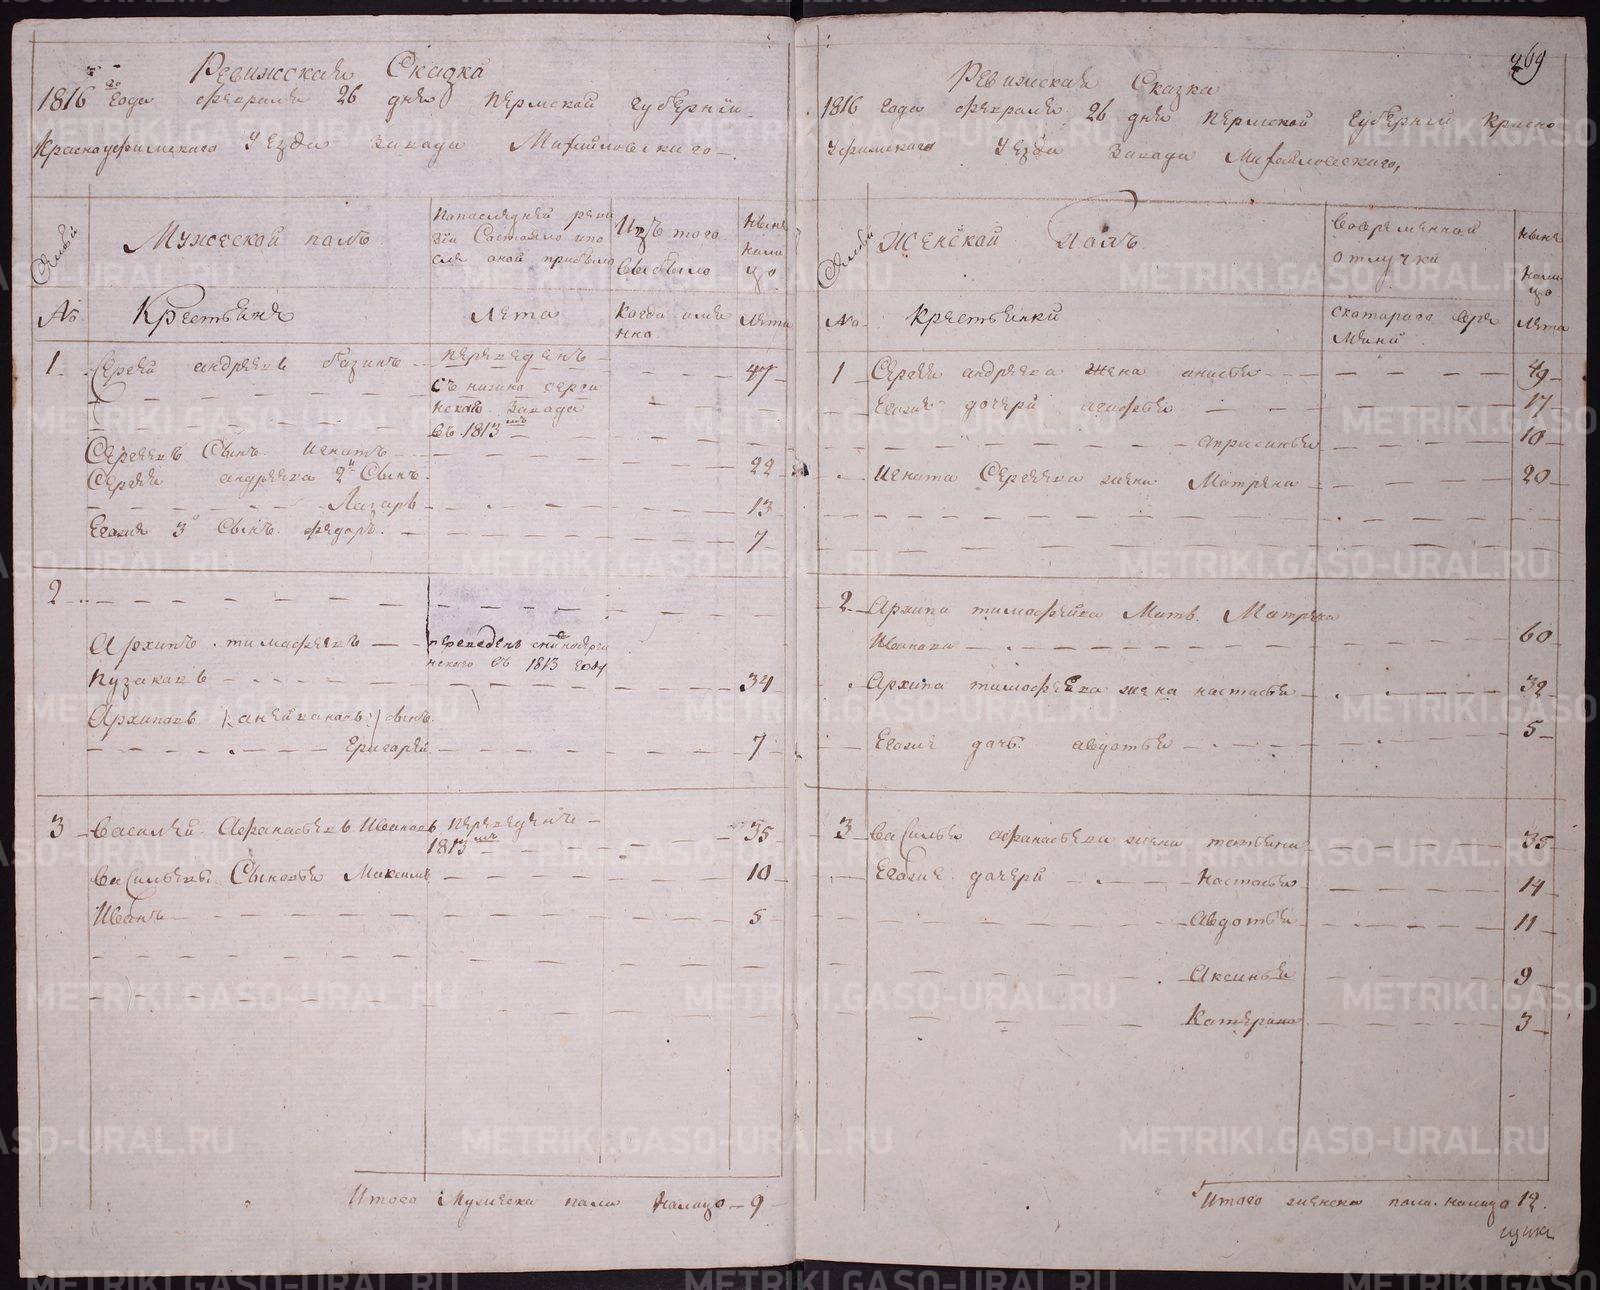 Ревижская Сказка
1816 го года февраля 26 дня пермской губернии
Красноуфимского уезда завода Михайловского
Семьи
Мужеской полъ
Напоследней реви
зіи Состояло ипо
сле оной прибыло
Изъ того
выбыло
Ныне
нали
цо
№
Крестьяня
Лета
Когда имя
нно
Лета
1 Сергей андреевъ
переведенъ
47
съ нижно серги
нской завода
въ 1813 мъ
Сергеевъ Сынъ игнатъ
22
Сергея андреева 2й Сынъ
Лазарь
13
Егоже 3й Сынъ федоръ
7
2
Архипъ тимофеевъ
переведенъ
нского въ 1813 году
Пузаковъ
34
Архиповъ сынъ
григорей
7
3 Василей Афанасьевъ Ивановъ переведенъ
1813 мъ
35
Васильевы Сыновья Максимъ
10
Иванъ
5
Итого Мужеска пола налицо 9
269
Ревижская Сказка
1816 года февраля 26 дня пермской губернии Красно
уфимского уезда завода Михайловского,
Семьи
Женской полъ
Вовременной
отлучки
Ныне
нали
цо
№
Крестьянки
скотораго вре
мени
Лета
1 Сергея андреева жена анисья
49
Егоже дочери агафья
17
апросинья
10
Игната Сергеева жена Матрена
20
2 Архипа тимофеива Мать Матрена
Иванова
60
Архипа тимофеева жена настасья
32
Егоже дочь авдотья
5
3 Василья афанасьева жена татьяна
35
Егоже дочери Настасья
14
Авдотья
11
Аксинья
9
Катерина
3
Итого женска пола налицо 12